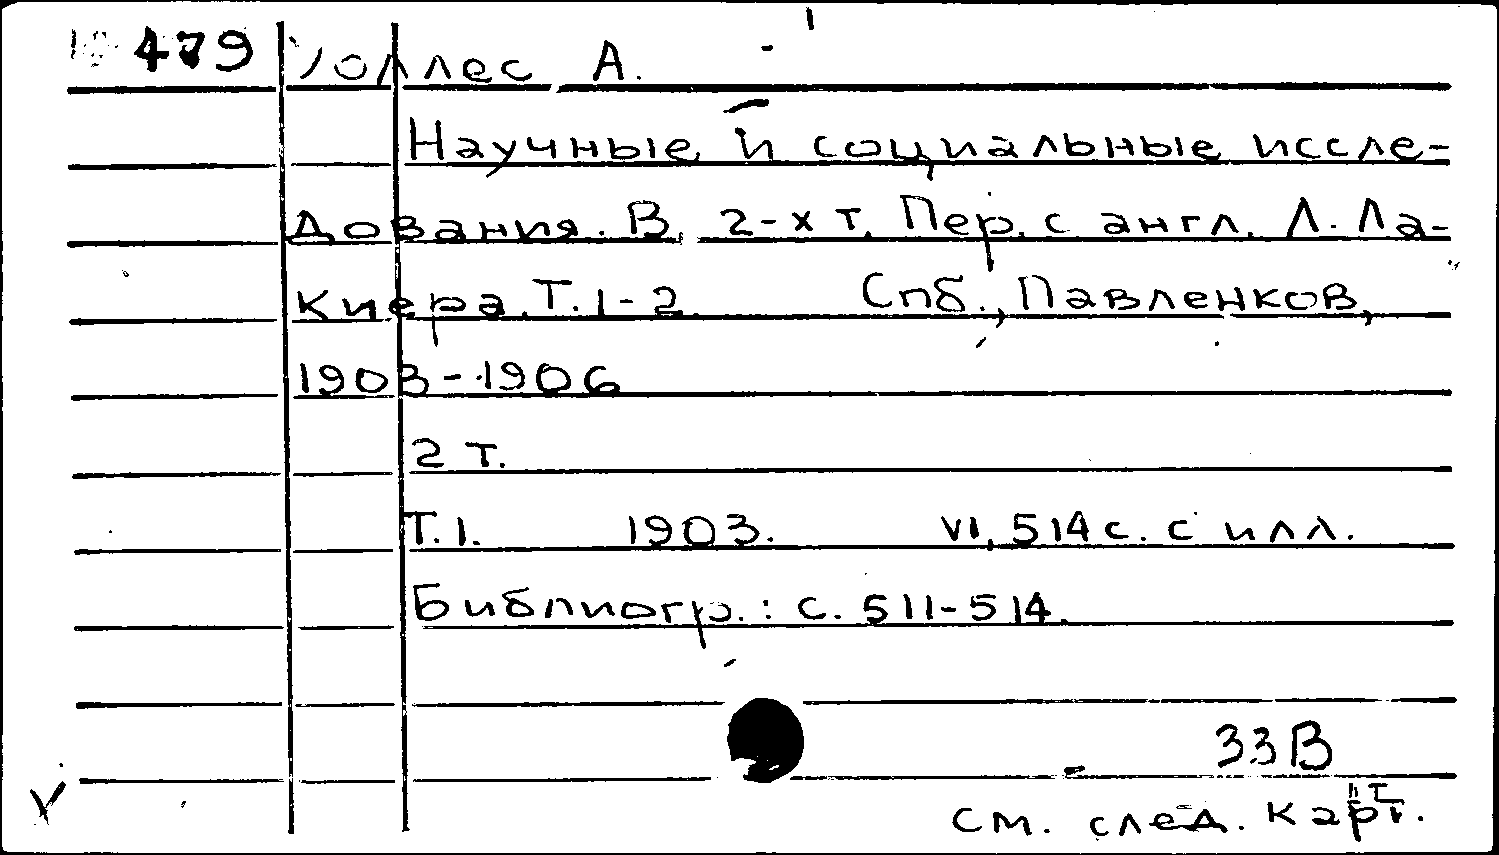 479 Уоллес А.
Научные и социальные иссле-
дования. В 2-х т. Пер. с англ. Л. Ла-
киера. Т. 1-2. Спб., Павленков,
1903-1906
2 т.
Т. 1. 1903. VI, 514 с. с илл.
Библиогр.: с. 511-514.
33В
см. след. карт.